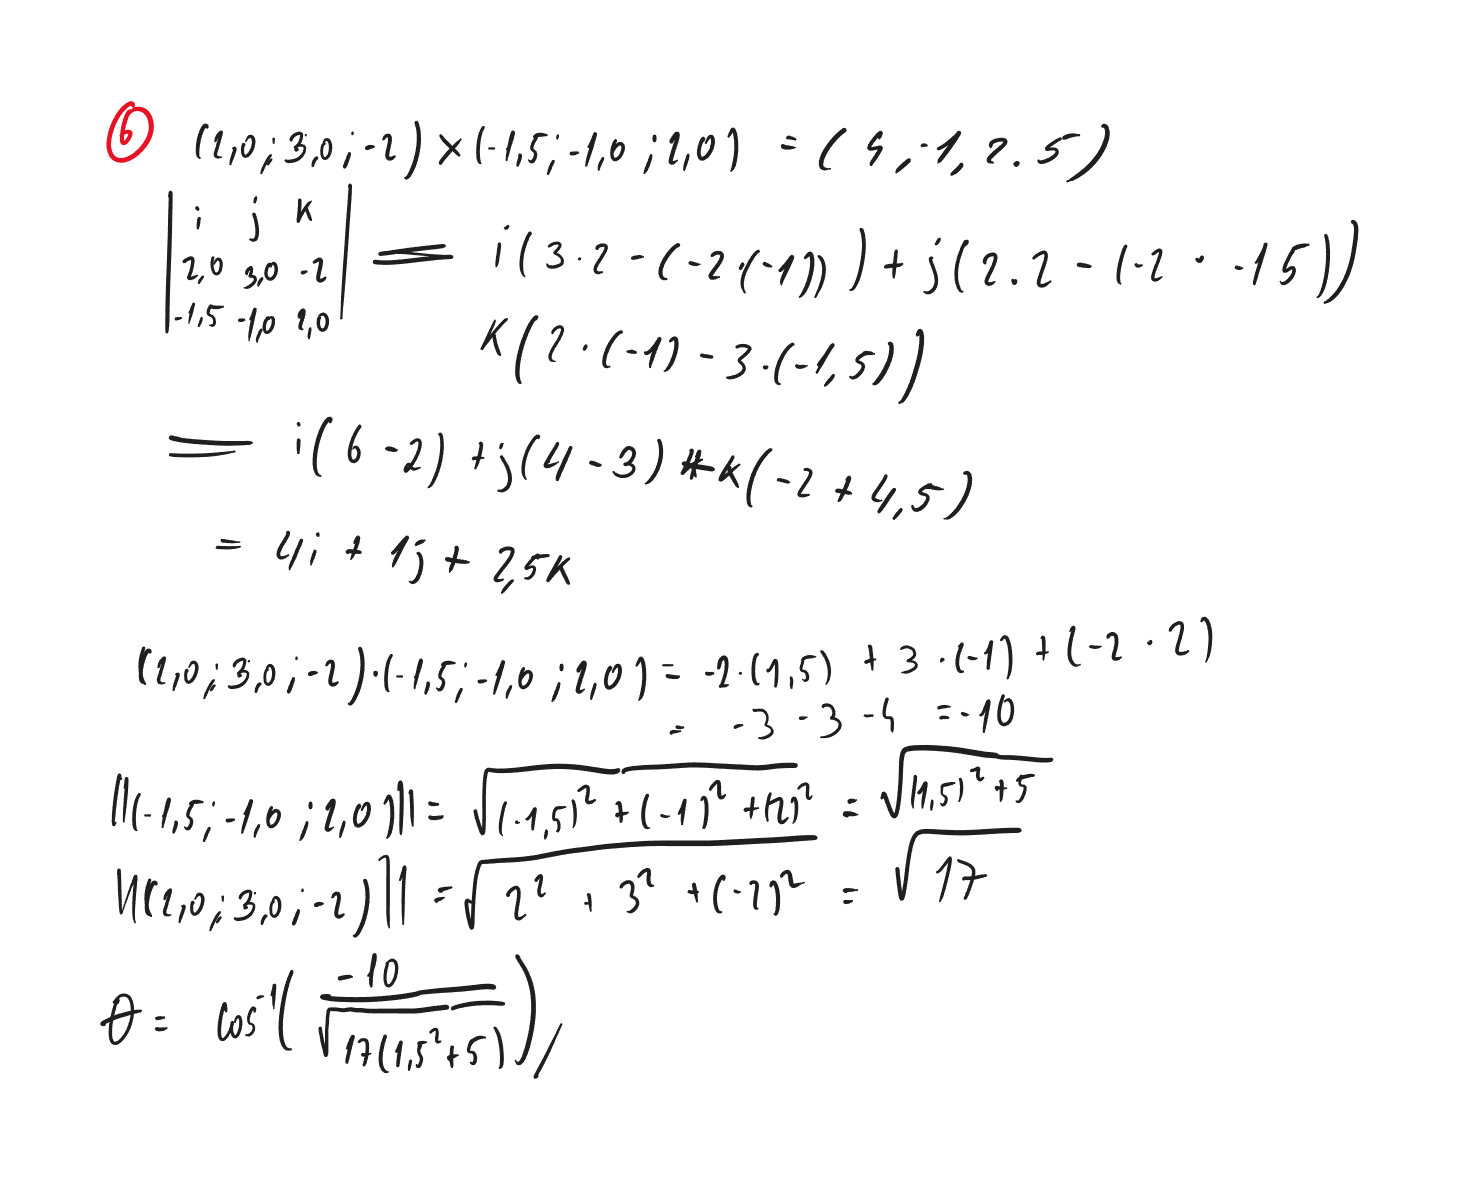 6 (2,0 ; 3,0 ; -2) × (-1,5 ; -1,0 ; 2,0) = (4, -1, 2.5)
| i j K |
| 2,0 3,0 -2 | = i(3·2 - (-2·(-1))) + j(2.2 - (-2 · -15))
| -1,5 -1,0 2,0 |
K(2·(-1) - 3·(-1,5))
= i(6-2) + j(4-3) + K(-2 + 4,5)
= 4i + 1j + 2,5K
(2,0 ; 3,0 ; -2)·(-1,5 ; -1,0 ; 2,0) = -2·(1,5) + 3·(-1) + (-2 · 2)
= -3 -3 -4 = -10
||(-1,5 ; -1,0 ; 2,0)|| = √((-1,5)² + (-1)² + (2)²) = √((1,5)² + 5)
||(2,0 ; 3,0 ; -2)|| = √(2² + 3² + (-2)²) = √17
θ = cos⁻¹( -10 / √(17(1,5² + 5)) ) /